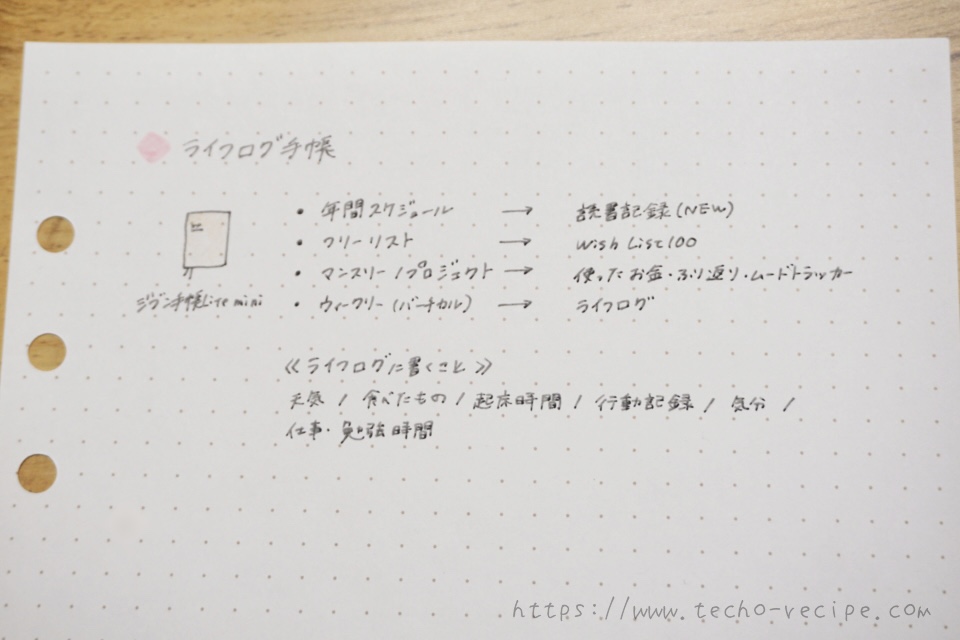 ライフログ手帳
・ 年間スケジュール → 読書記録(NEW)
・ フリーリスト → Wish List 100
・ マンスリー/プロジェクト → 使ったお金・ふり返り・ムードトラッカー
・ ウィークリー(バーチカル) → ライフログ
ジブン手帳Lite mini
≪ライフログに書くこと≫
天気 / 食べたもの / 起床時間 / 行動記録 / 気分 /
仕事・勉強時間
https://www.techo-recipe.com